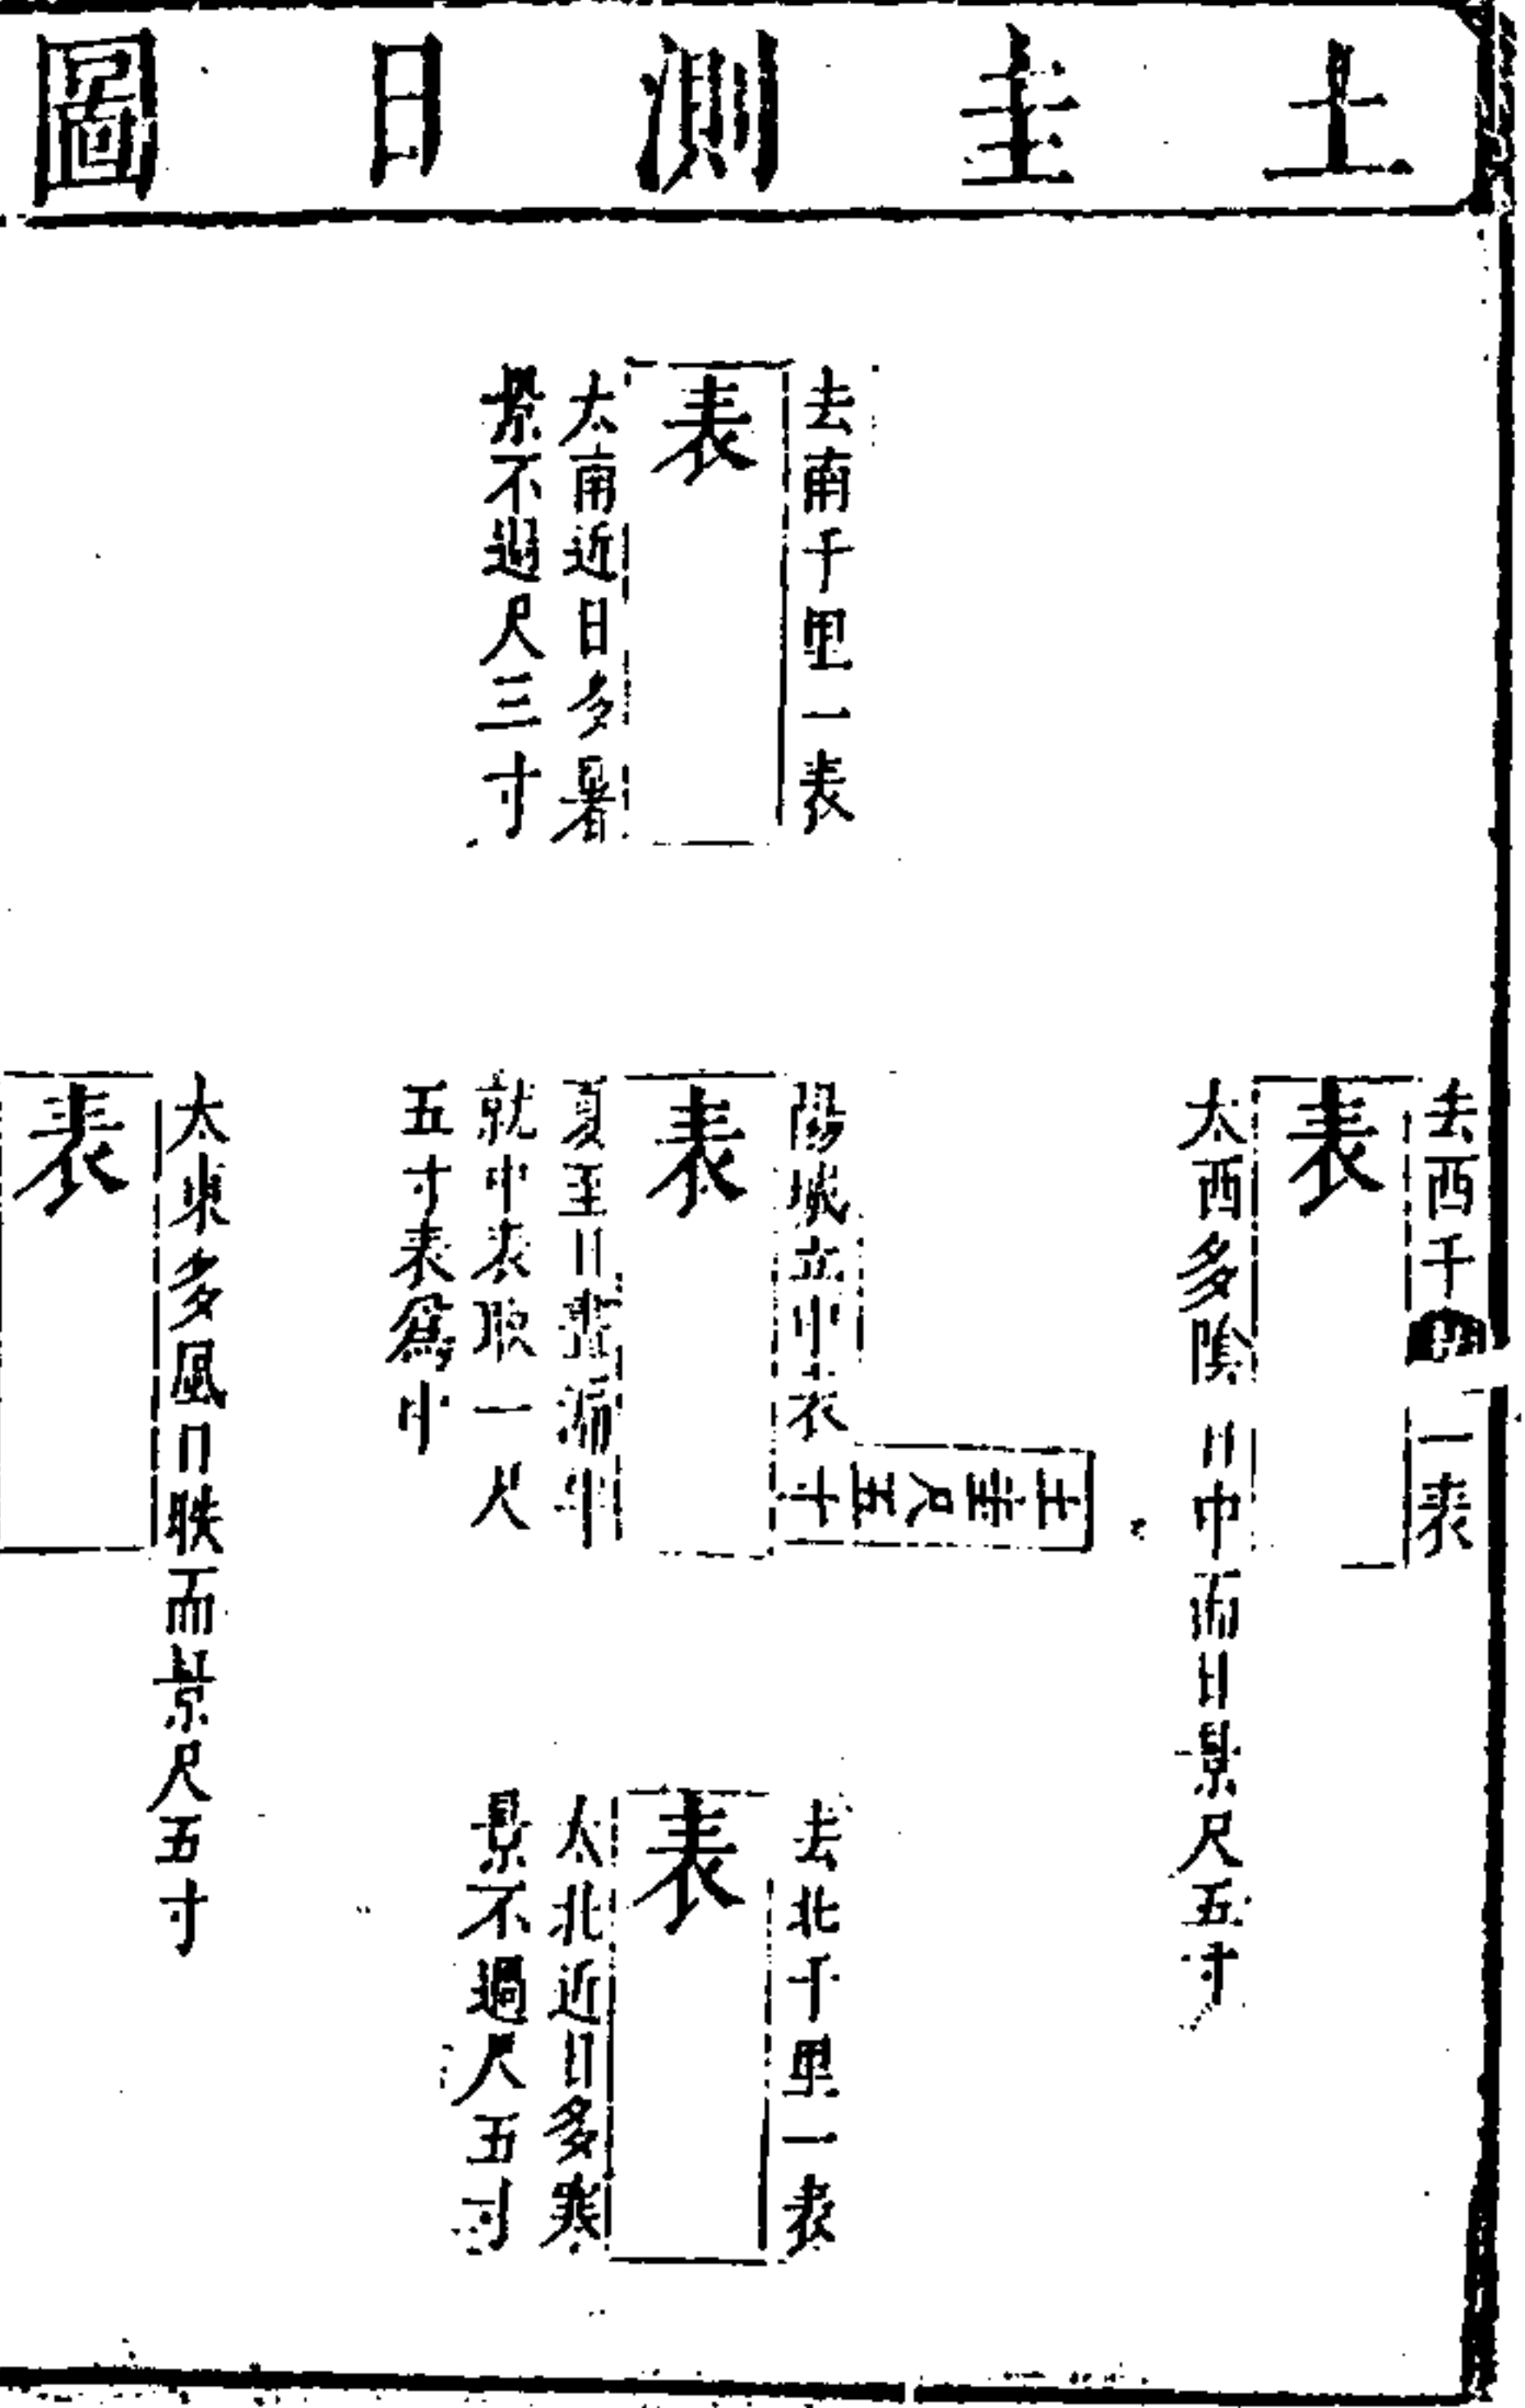 土圭測日圖
去南千里一表
表
太南近日多暑
景不過尺三寸
去西千里一表
表
太西多陰日中而日景尺五寸
陽城立中表
土圭尺五寸
表
夏至日晝漏半
就中表取一尺
五寸表為中
太東多風日昳而景尺五寸
表
去北千里一表
表
太北近日多寒
景不過尺五寸